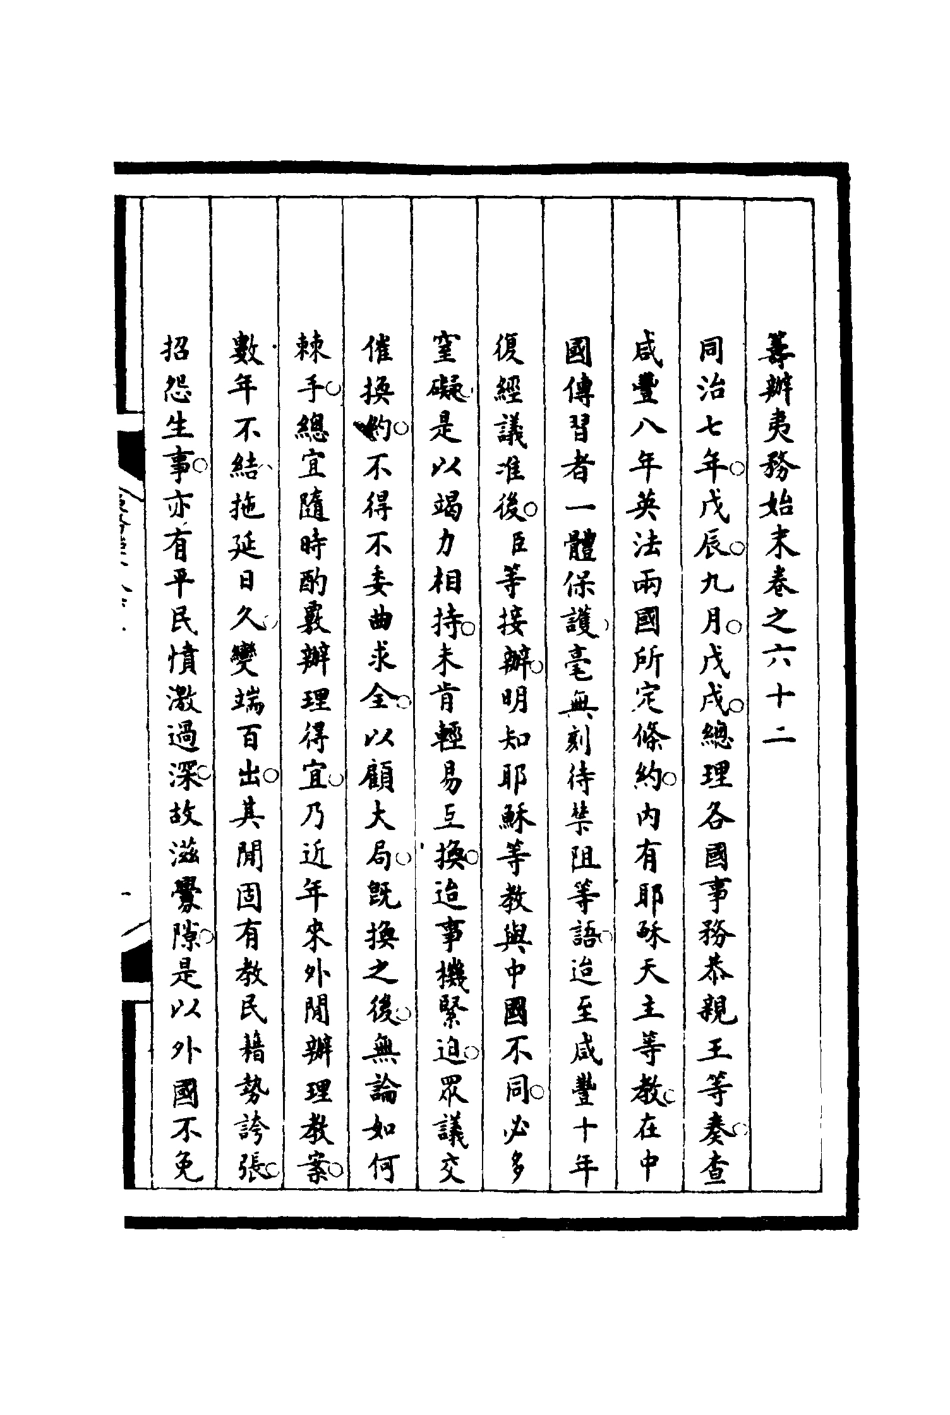 籌辦夷務始末卷之六十二
同治七年。戊辰。九月。戊戌。總理各國事務恭親王等奏。查
咸豐八年英法兩國所定條約。內有耶穌天主等教。在中
國傳習者一體保護。毫無刻待禁阻等語。迨至咸豐十年
復經議准後。臣等接辦。明知耶穌等教與中國不同。必多
窒礙。是以竭力相持。未肯輕易互換。迨事機緊迫。眾議交
催換約。不得不委曲求全。以顧大局。既換之後。無論如何
棘手。總宜隨時酌覈辦理得宜。乃近年來外間辦理教案。
數年不結。拖延日久。變端百出。其間固有教民藉勢誇張。
招怨生事。亦有平民憤激過深。故滋釁隙。是以外國不免